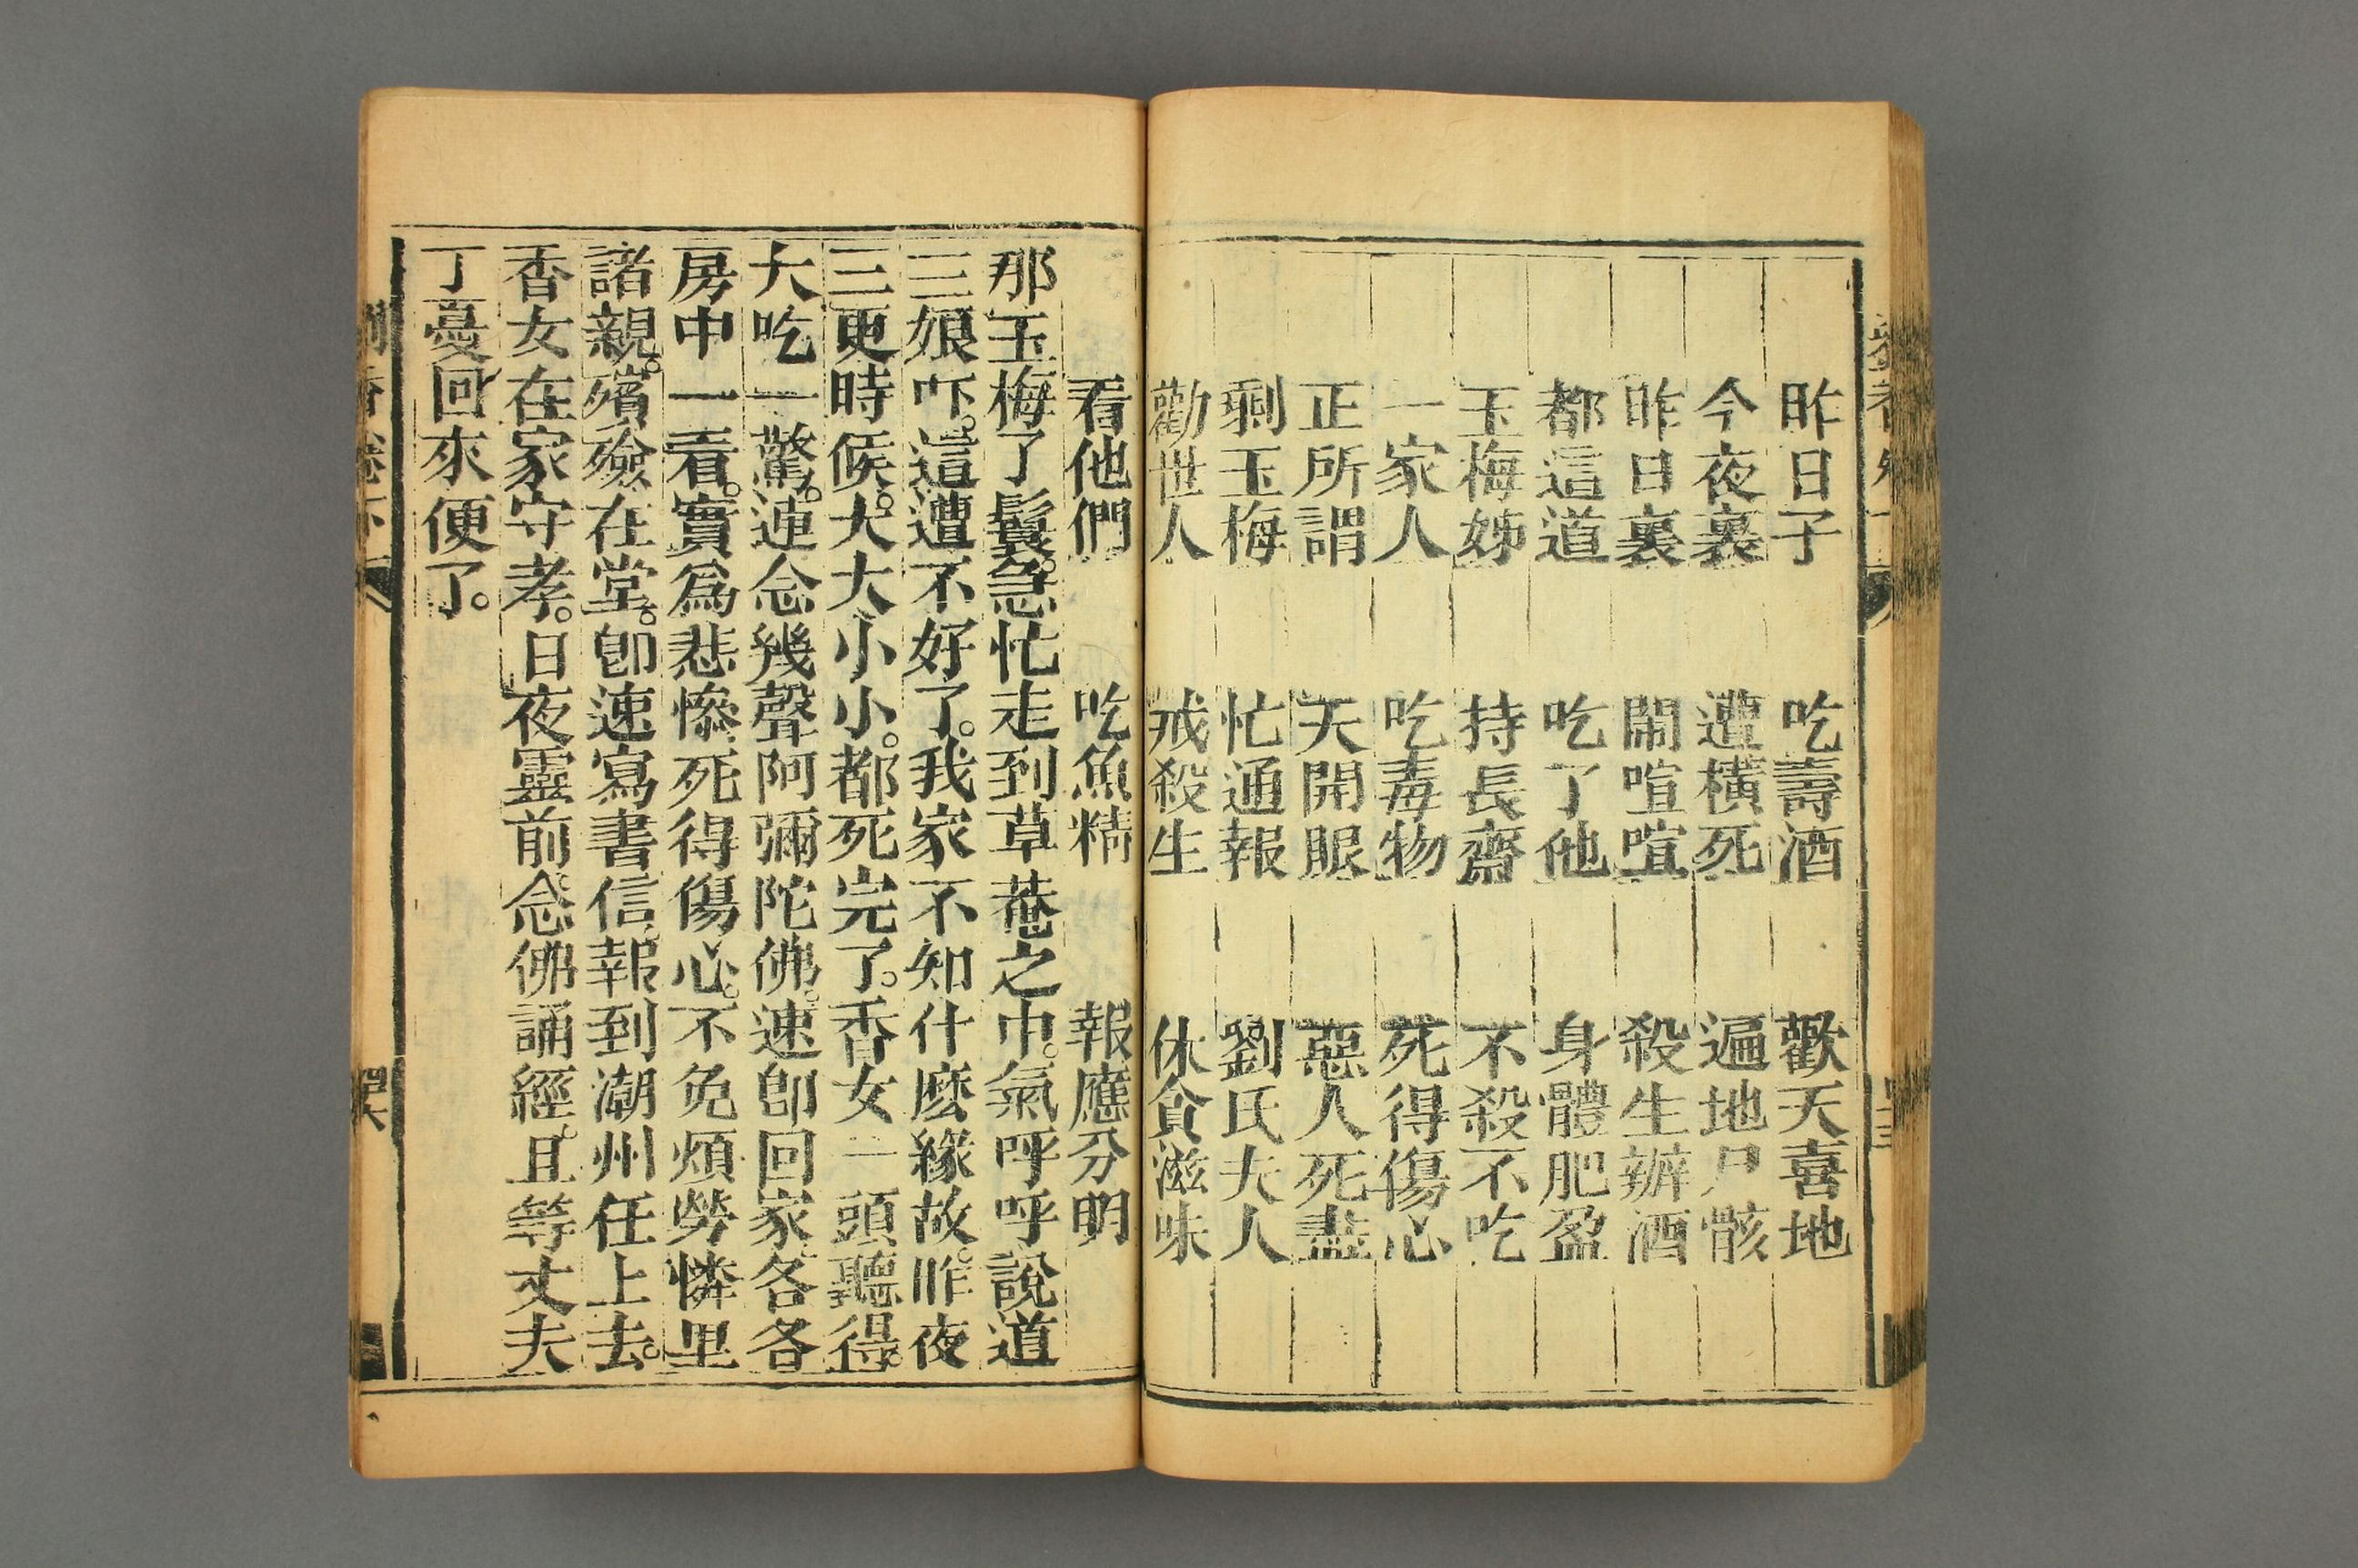 昨日子　吃壽酒　歡天喜地
今夜裏　遭橫死　遍地尸骸
昨日裏　鬧喧喧　殺生辦酒
都這道　吃了他　身體肥盈
玉梅姊　持長齋　不殺不吃
一家人　吃毒物　死得傷心
正所謂　天開眼　惡人死盡
剩玉梅　忙通報　劉氏夫人
勸世人　戒殺生　休貪滋味
看他們　吃魚精　報應分明
那玉梅了鬟。急忙走到草菴之中。氣呼呼說道
三娘吓。這遭不好了。我家不知什麽緣故。昨夜
三更時候。大大小小。都死完了。香女一頭聽得。
大吃一驚。連念幾聲阿彌陀佛。速卽回家各各
房中一看。實爲悲慘。死得傷心。不免煩勞憐里
諸親。殯殮在堂。卽速寫書信。報到潮州任上去。
香女在家守孝。日夜靈前念佛誦經。且等丈夫
丁憂回來便了。